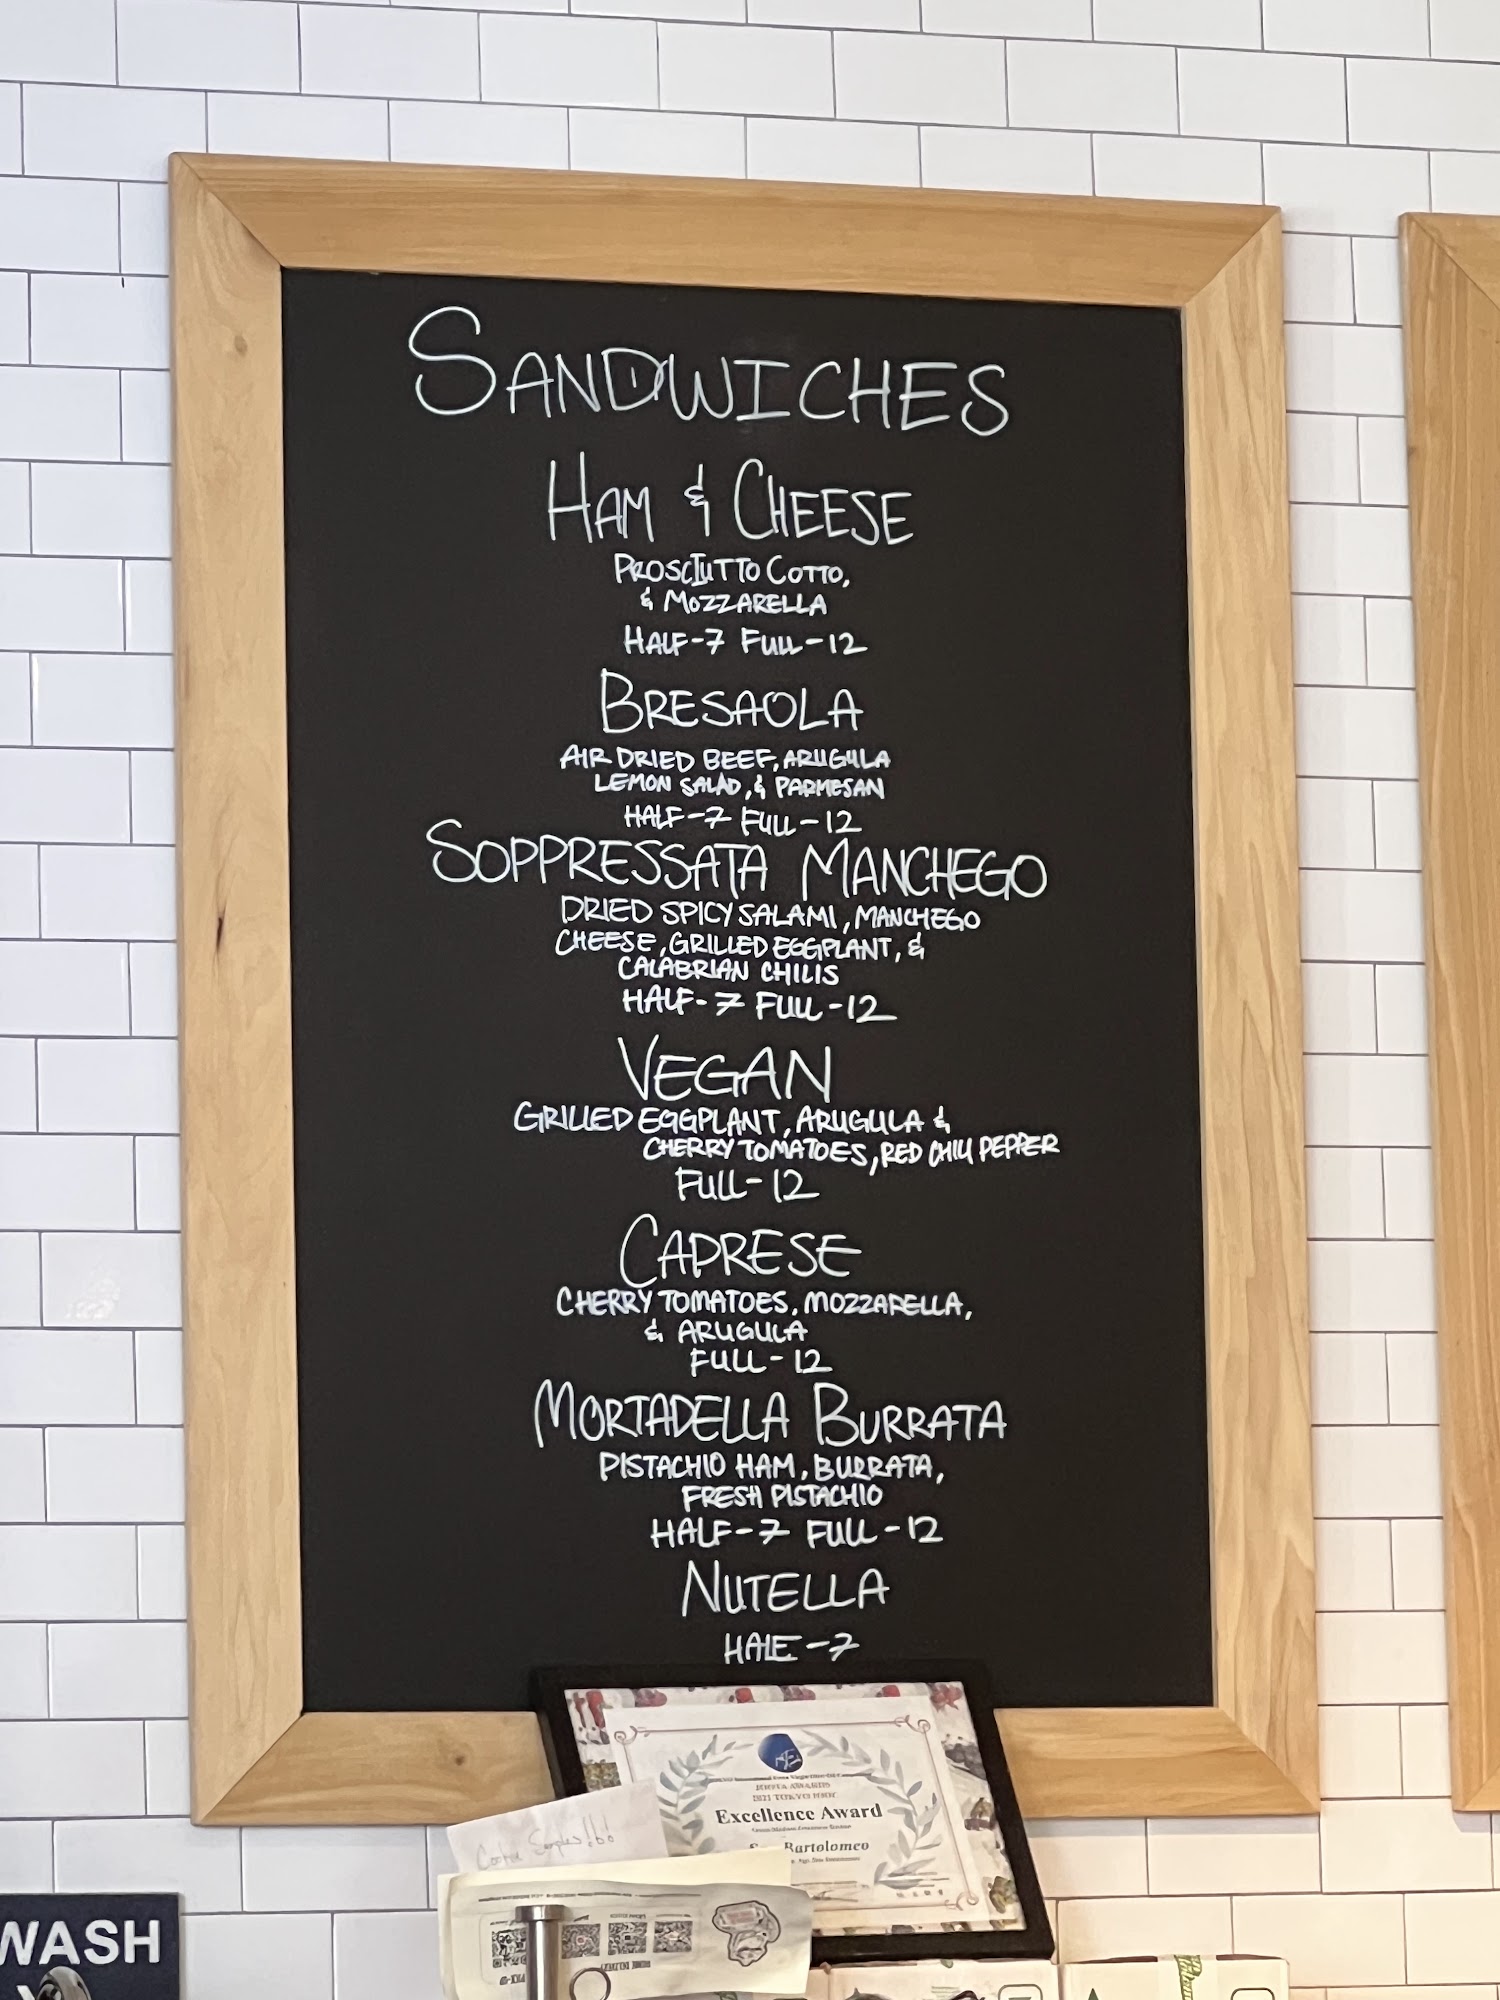 SANDWICHES
HAM & CHEESE
PROSCIUTTO COTTO,
& MOZZARELLA
HALF-7 FULL-12
BRESAOLA
AIR DRIED BEEF, ARUGULA
LEMON SALAD, & PARMESAN
HALF-7 FULL-12
SOPPRESSATA MANCHEGO
DRIED SPICY SALAMI, MANCHEGO
CHEESE, GRILLED EGGPLANT, &
CALABRIAN CHILIS
HALF-7 FULL-12
VEGAN
GRILLED EGGPLANT, ARUGULA &
CHERRY TOMATOES, RED CHILI PEPPER
FULL-12
CAPRESE
CHERRY TOMATOES, MOZZARELLA,
& ARUGULA
FULL-12
MORTADELLA BURRATA
PISTACHIO HAM, BURRATA,
FRESH PISTACHIO
HALF-7 FULL-12
NUTELLA
HALF-7
Excellence Award
Bartolomeo
WASH